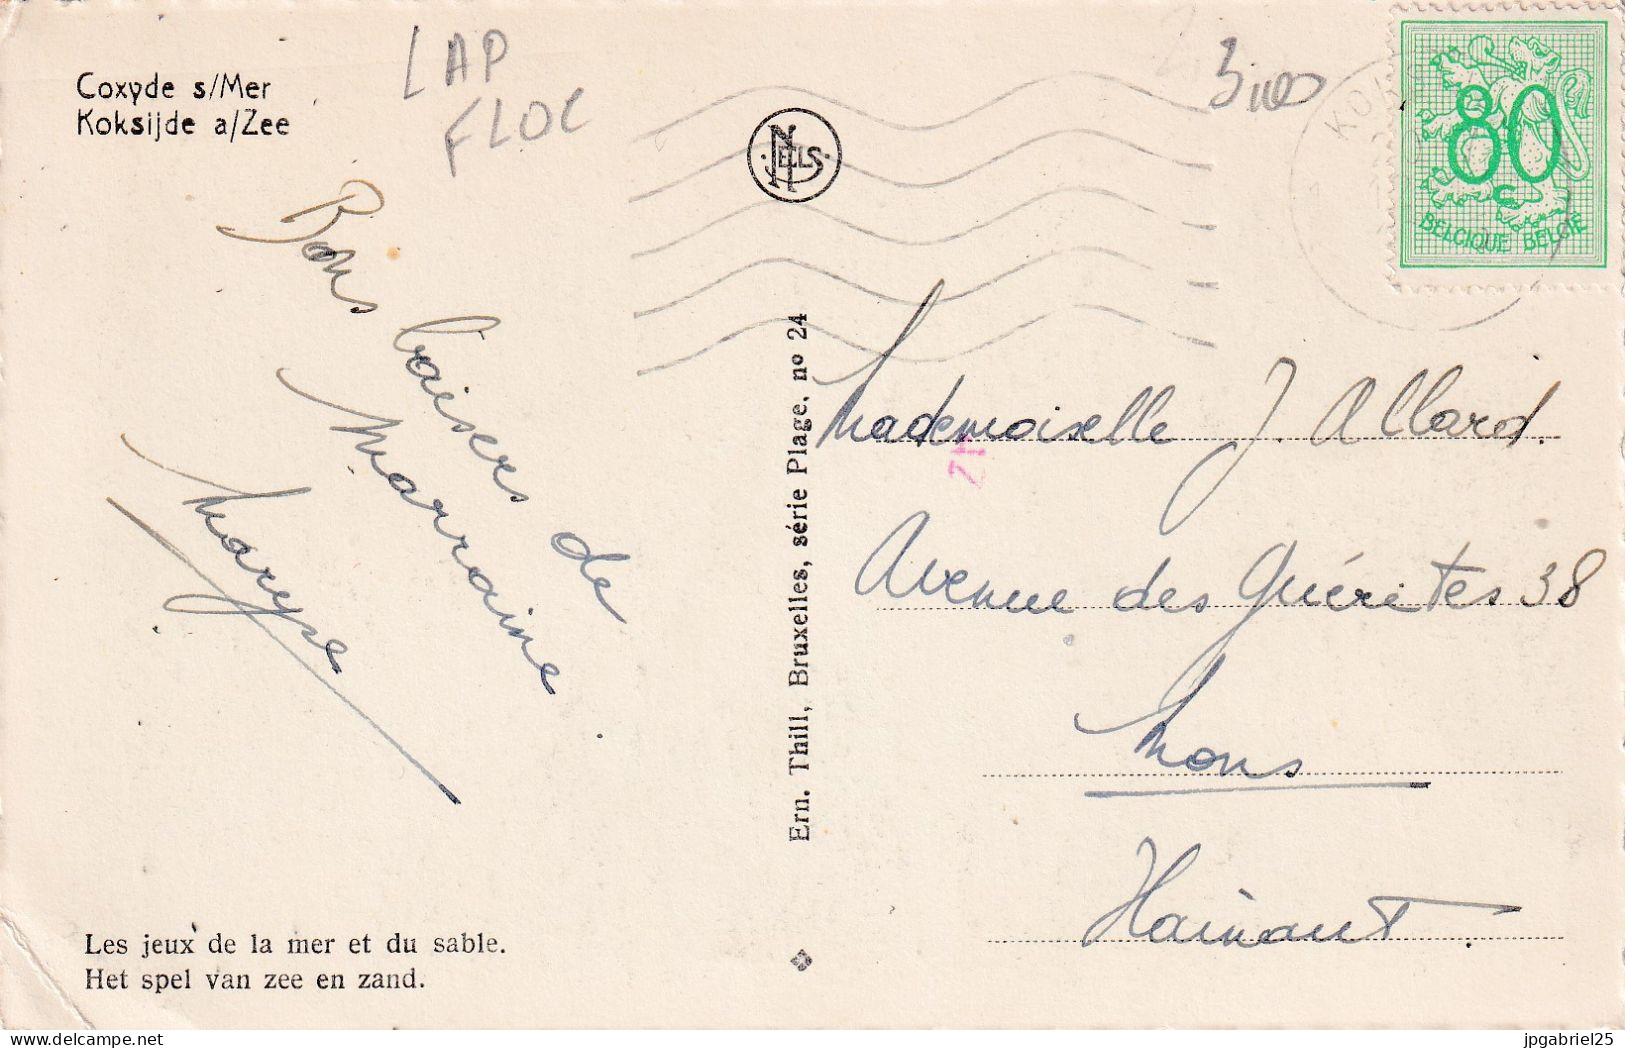 Coxyde s/Mer
Koksijde a/Zee
LAP
FLOC
NELLS
80
c
BELGIQUE BELGIË
Bons baisers de
Marraine
Maryse
Ern. Thill, Bruxelles, série Plage, nº 24
Mademoiselle J. Allard.
Avenue des Guérites 38
Mons
Hainaut.
Les jeux de la mer et du sable.
Het spel van zee en zand.
delcampe.net
jpgabriel25